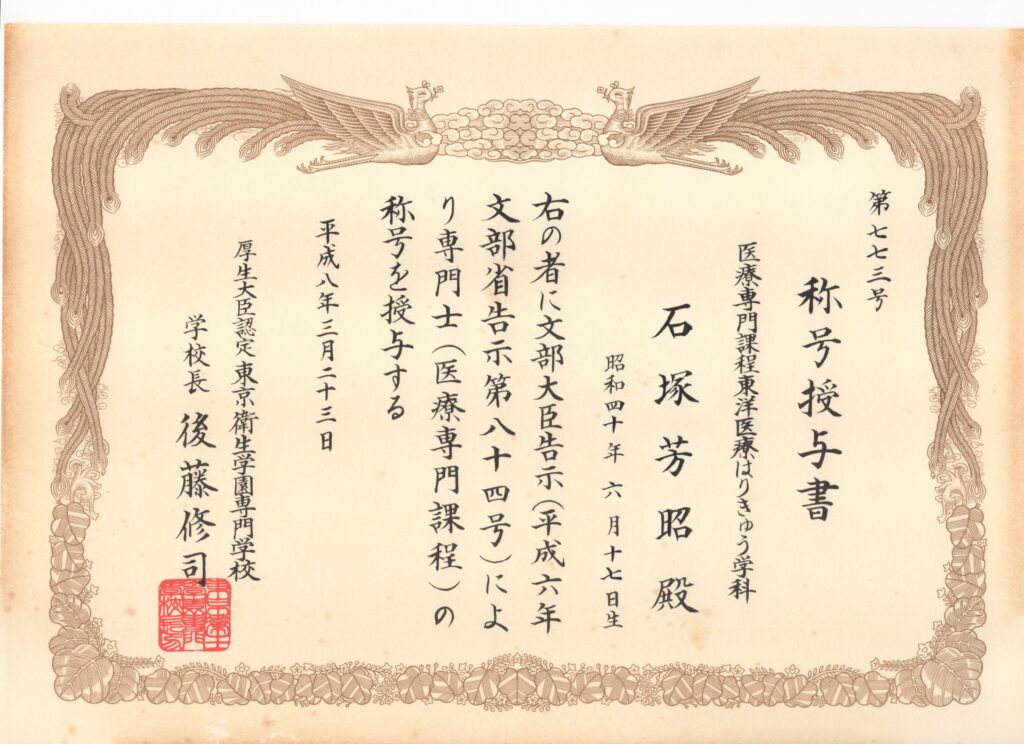 第七七三号
称号授与書
医療専門課程東洋医療はりきゅう学科
石塚芳昭殿
昭和四十年六月十七日生
右の者に文部大臣告示(平成六年
文部省告示第八十四号)によ
り専門士(医療専門課程)の
称号を授与する
平成八年三月二十三日
厚生大臣認定東京衛生学園専門学校
学校長 後藤修司